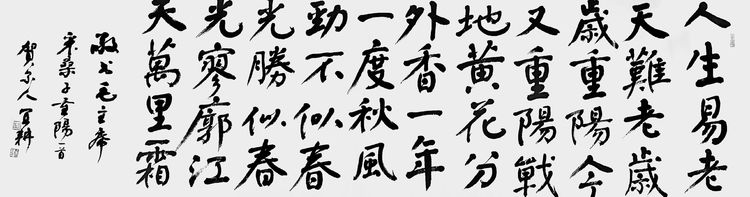 人生易老
天難老歲
歲重陽今
又重陽戰
地黃花分
外香一年
一度秋風
勁不似春
光勝似春
光寥廓江
天萬里霜
敬书毛主席
采桑子重陽一首